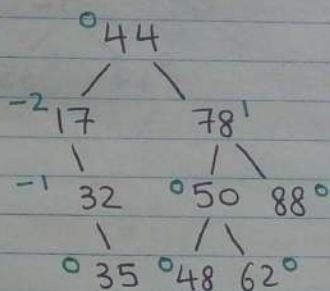 0 44
-2 17 78 1
-1 32 0 50 88 0
0 35 0 48 62 0